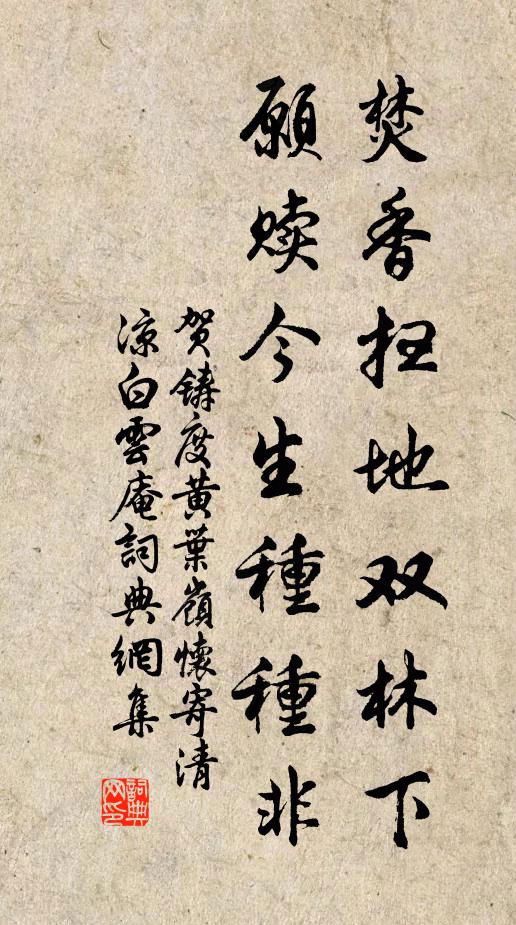 焚香扫地双林下
願赎今生種種非
贺鑄度黃葉嶺懷寄清
凉白雲庵詞典網集
詞典
网印